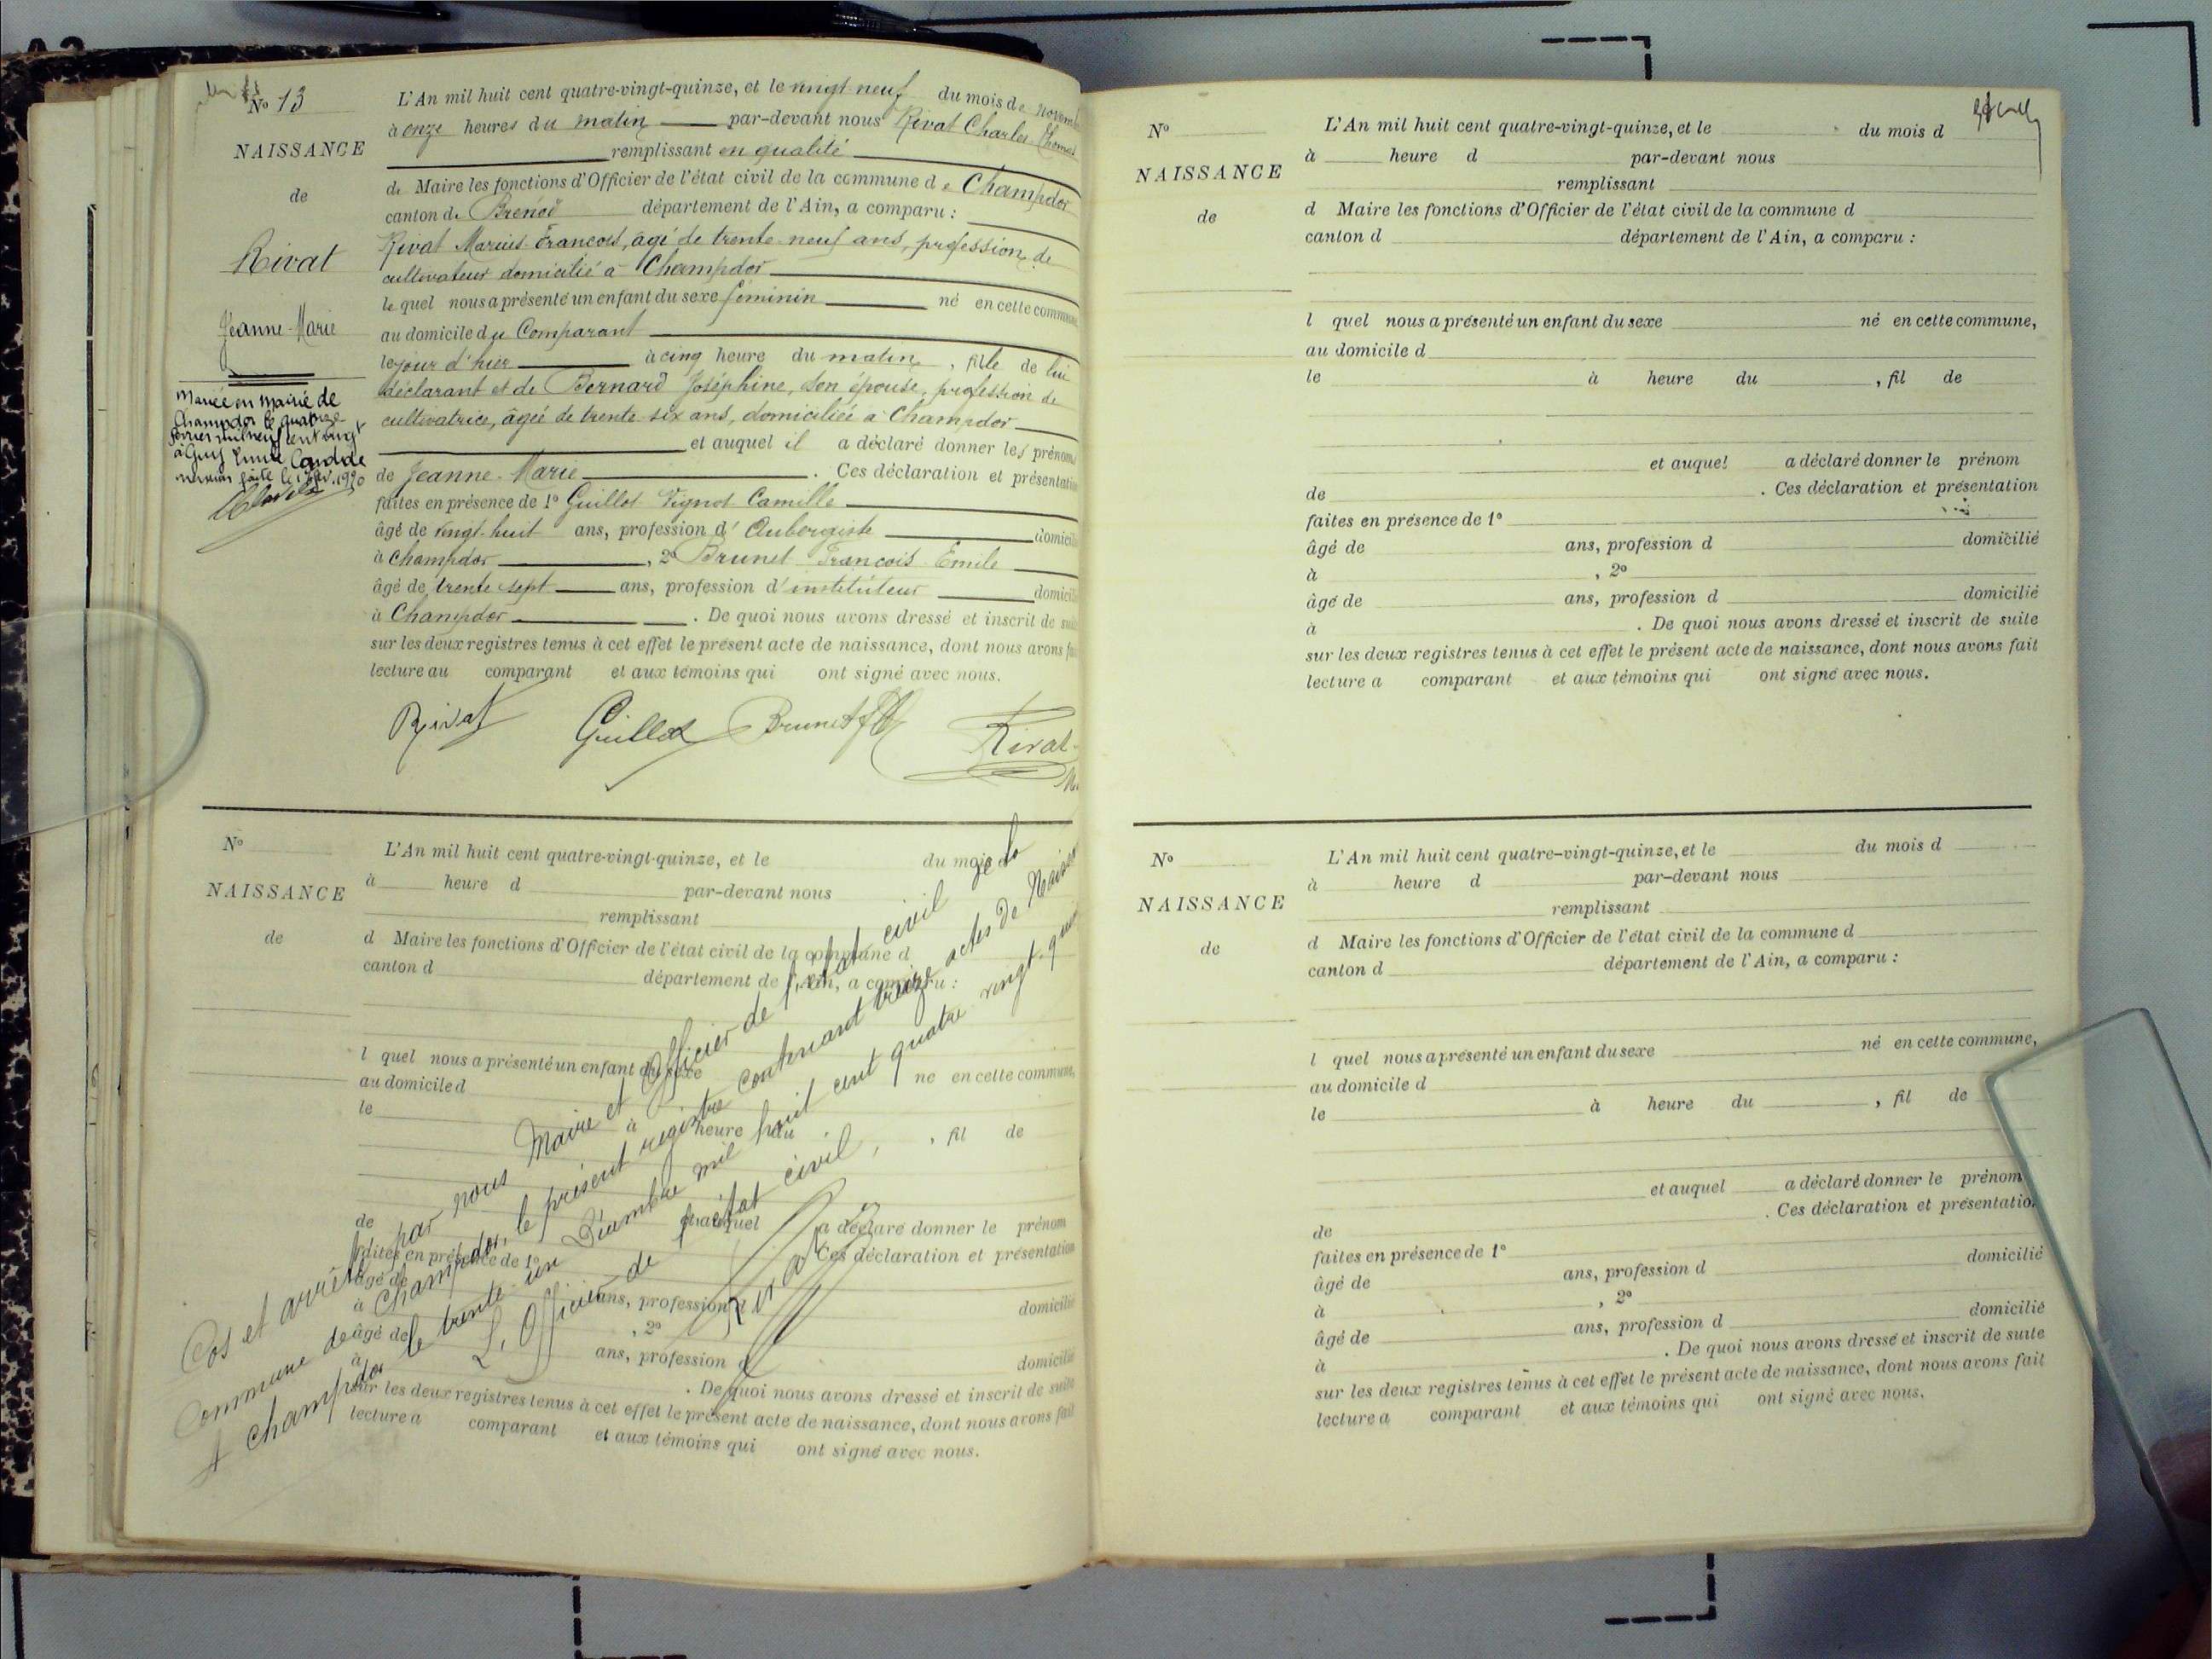 N° 13
NAISSANCE
de
Rivat
Jeanne-Marie
Mariée en mairie de
Champdor le quatorze
février mil neuf cent vingt
à Guy Emile Candide
mention faite le février 1920
L'An mil huit cent quatre-vingt-quinze, et le vingt-neuf du mois de novembre
à onze heures du matin par-devant nous Rivat Charles Thomas
remplissant en qualité
de Maire les fonctions d'Officier de l'état civil de la commune de Champdor
canton de Brénod département de l'Ain, a comparu :
Rivat Marius François, âgé de trente neuf ans, profession de
cultivateur domicilié à Champdor
le quel nous a présenté un enfant du sexe féminin né en cette commune,
au domicile du Comparant
le jour d'hier à cinq heure du matin, fille de lui
déclarant et de Bernard Joséphine, son épouse, profession de
cultivatrice, âgée de trente six ans, domiciliée à Champdor
et auquel il a déclaré donner les prénoms
de Jeanne-Marie . Ces déclaration et présentation
faites en présence de 1° Guillot Vignot Camille
âgé de vingt-huit ans, profession d'Aubergiste domicilié
à Champdor , 2° Brunet François Emile
âgé de trente sept ans, profession d'instituteur domicilié
à Champdor . De quoi nous avons dressé et inscrit de suite
sur les deux registres tenus à cet effet le présent acte de naissance, dont nous avons fait
lecture au comparant et aux témoins qui ont signé avec nous.
Rivat Guillot Brunet Rivat
N°
NAISSANCE
de
L'An mil huit cent quatre-vingt-quinze, et le du mois d
à heure d par-devant nous
remplissant
d Maire les fonctions d'Officier de l'état civil de la commune d
canton d département de l'Ain, a comparu :
l quel nous a présenté un enfant du sexe né en cette commune,
au domicile d
le à heure du , fil de
et auquel a déclaré donner le prénom
de . Ces déclaration et présentation
faites en présence de 1°
âgé de ans, profession d domicilié
à , 2°
âgé de ans, profession d domicilié
à . De quoi nous avons dressé et inscrit de suite
sur les deux registres tenus à cet effet le présent acte de naissance, dont nous avons fait
lecture a comparant et aux témoins qui ont signé avec nous.
Clos et arrêté par nous Maire et Officier de l'état civil de la
Commune de Champdor, le présent registre contenant treize actes de Naissance
A Champdor le trente-un Décembre mil huit cent quatre vingt-quinze
L'Officier de l'état civil,
Rivat
N°
NAISSANCE
de
L'An mil huit cent quatre-vingt-quinze, et le du mois d
à heure d par-devant nous
remplissant
d Maire les fonctions d'Officier de l'état civil de la commune d
canton d département de l'Ain, a comparu :
l quel nous a présenté un enfant du sexe né en cette commune,
au domicile d
le à heure du , fil de
et auquel a déclaré donner le prénom
de . Ces déclaration et présentation
faites en présence de 1°
âgé de ans, profession d domicilié
à , 2°
âgé de ans, profession d domicilié
à . De quoi nous avons dressé et inscrit de suite
sur les deux registres tenus à cet effet le présent acte de naissance, dont nous avons fait
lecture a comparant et aux témoins qui ont signé avec nous.
N°
NAISSANCE
de
L'An mil huit cent quatre-vingt-quinze, et le du mois d
à heure d par-devant nous
remplissant
d Maire les fonctions d'Officier de l'état civil de la commune d
canton d département de l'Ain, a comparu :
l quel nous a présenté un enfant du sexe né en cette commune,
au domicile d
le à heure du , fil de
et auquel a déclaré donner le prénom
de . Ces déclaration et présentation
faites en présence de 1°
âgé de ans, profession d domicilié
à , 2°
âgé de ans, profession d domicilié
à . De quoi nous avons dressé et inscrit de suite
sur les deux registres tenus à cet effet le présent acte de naissance, dont nous avons fait
lecture a comparant et aux témoins qui ont signé avec nous.